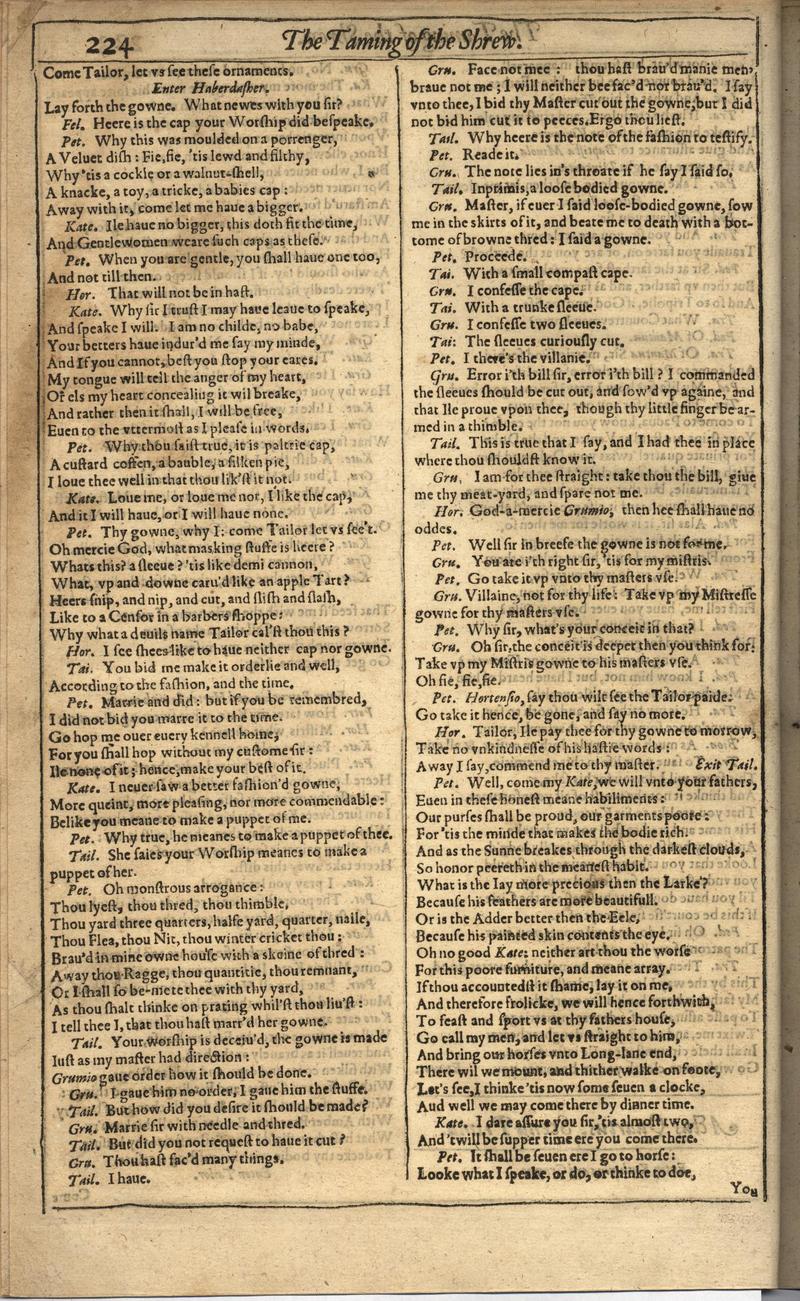 224
The Taming of the Shrew.
Come Tailor, let vs see these ornaments.
Enter Haberdasher.
Lay forth the gowne. What newes with you sir?
Fel. Heere is the cap your Worship did bespeake.
Pet. Why this was moulded on a porrenger,
A Veluet dish: Fie, fie, 'tis lewd and filthy,
Why 'tis a cockle or a walnut-shell,
A knacke, a toy, a tricke, a babies cap:
Away with it, come let me haue a bigger.
Kate. Ile haue no bigger, this doth fit the time,
And Gentlewomen weare such caps as these.
Pet. When you are gentle, you shall haue one too,
And not till then.
Hor. That will not be in hast.
Kate. Why sir I trust I may haue leaue to speake,
And speake I will. I am no childe, no babe,
Your betters haue indur'd me say my minde,
And If you cannot, best you stop your eares.
My tongue will tell the anger of my heart,
Or els my heart concealing it wil breake,
And rather then it shall, I will be free,
Euen to the vttermost as I please in words.
Pet. Why thou saist true, it is paltrie cap,
A custard coffen, a bauble, a silken pie,
I loue thee well in that thou lik'st it not.
Kate. Loue me, or loue me not, I like the cap,
And it I will haue, or I will haue none.
Pet. Thy gowne, why I: come Tailor let vs see't.
Oh mercie God, what masking stuffe is heere?
Whats this? a sleeue? 'tis like demi cannon,
What, vp and downe caru'd like an apple Tart?
Heers snip, and nip, and cut, and slish and slash,
Like to a Censor in a barbers shoppe:
Why what a deuils name Tailor cal'st thou this?
Hor. I see shees like to haue neither cap nor gowne.
Tai. You bid me make it orderlie and well,
According to the fashion, and the time.
Pet. Marrie and did: but if you be remembred,
I did not bid you marre it to the time.
Go hop me ouer euery kennell home,
For you shall hop without my custome sir:
Ile none of it; hence, make your best of it.
Kate. I neuer saw a better fashion'd gowne,
More queint, more pleasing, nor more commendable:
Belike you meane to make a puppet of me.
Pet. Why true, he meanes to make a puppet of thee.
Tail. She saies your Worship meanes to make a
puppet of her.
Pet. Oh monstrous arrogance:
Thou lyest, thou thred, thou thimble,
Thou yard three quarters, halfe yard, quarter, naile,
Thou Flea, thou Nit, thou winter cricket thou:
Brau'd in mine owne house with a skeine of thred:
Away thou Ragge, thou quantitie, thou remnant,
Or I shall so be-mete thee with thy yard,
As thou shalt thinke on prating whil'st thou liu'st:
I tell thee I, that thou hast marr'd her gowne.
Tail. Your worship is deceiu'd, the gowne is made
Iust as my master had direction:
Grumio gaue order how it should be done.
Gru. I gaue him no order, I gaue him the stuffe.
Tail. But how did you desire it should be made?
Gru. Marrie sir with needle and thred.
Tail. But did you not request to haue it cut?
Gru. Thou hast fac'd many things.
Tail. I haue.
Gru. Face not mee: thou hast brau'd manie men,
braue not me; I will neither bee fac'd nor brau'd. I say
vnto thee, I bid thy Master cut out the gowne, but I did
not bid him cut it to peeces. Ergo thou liest.
Tail. Why heere is the note of the fashion to testify.
Pet. Reade it.
Gru. The note lies in's throate if he say I said so.
Tail. Inprimis, a loose bodied gowne.
Gru. Master, if euer I said loose-bodied gowne, sow
me in the skirts of it, and beate me to death with a bot-
tome of browne thred: I said a gowne.
Pet. Proceede.
Tai. With a small compast cape.
Gru. I confesse the cape.
Tai. With a trunke sleeue.
Gru. I confesse two sleeues.
Tai: The sleeues curiously cut.
Pet. I there's the villanie.
Gru. Error i'th bill sir, error i'th bill? I commanded
the sleeues should be cut out, and sow'd vp againe, and
that Ile proue vpon thee, though thy little finger be ar-
med in a thimble.
Tail. This is true that I say, and I had thee in place
where thou shouldst know it.
Gru. I am for thee straight: take thou the bill, giue
me thy meat-yard, and spare not me.
Hor. God-a-mercie Grumio, then hee shall haue no
oddes.
Pet. Well sir in breefe the gowne is not for me.
Gru. You are i'th right sir, 'tis for my mistris.
Pet. Go take it vp vnto thy masters vse.
Gru. Villaine, not for thy life: Take vp my Mistresse
gowne for thy masters vse.
Pet. Why sir, what's your conceit in that?
Gru. Oh sir, the conceit is deeper then you think for:
Take vp my Mistris gowne to his masters vse.
Oh fie, fie, fie.
Pet. Hortensio, say thou wilt see the Tailor paide:
Go take it hence, be gone, and say no more.
Hor. Tailor, Ile pay thee for thy gowne to morrow,
Take no vnkindnesse of his hastie words:
Away I say, commend me to thy master. Exit Tail.
Pet. Well, come my Kate, we will vnto your fathers,
Euen in these honest meane habiliments:
Our purses shall be proud, our garments poore:
For 'tis the minde that makes the bodie rich.
And as the Sunne breakes through the darkest clouds,
So honor peereth in the meanest habit.
What is the Iay more precious then the Larke?
Because his feathers are more beautifull.
Or is the Adder better then the Eele,
Because his painted skin contents the eye.
Oh no good Kate: neither art thou the worse
For this poore furniture, and meane array.
If thou accountedst it shame, lay it on me,
And therefore frolicke, we will hence forthwith,
To feast and sport vs at thy fathers house,
Go call my men, and let vs straight to him,
And bring our horses vnto Long-lane end,
There wil we mount, and thither walke on foote,
Let's see, I thinke 'tis now some seuen a clocke,
Aud well we may come there by dinner time.
Kate. I dare assure you sir, 'tis almost two,
And 'twill be supper time ere you come there.
Pet. It shall be seuen ere I go to horse:
Looke what I speake, or do, or thinke to doe,
You